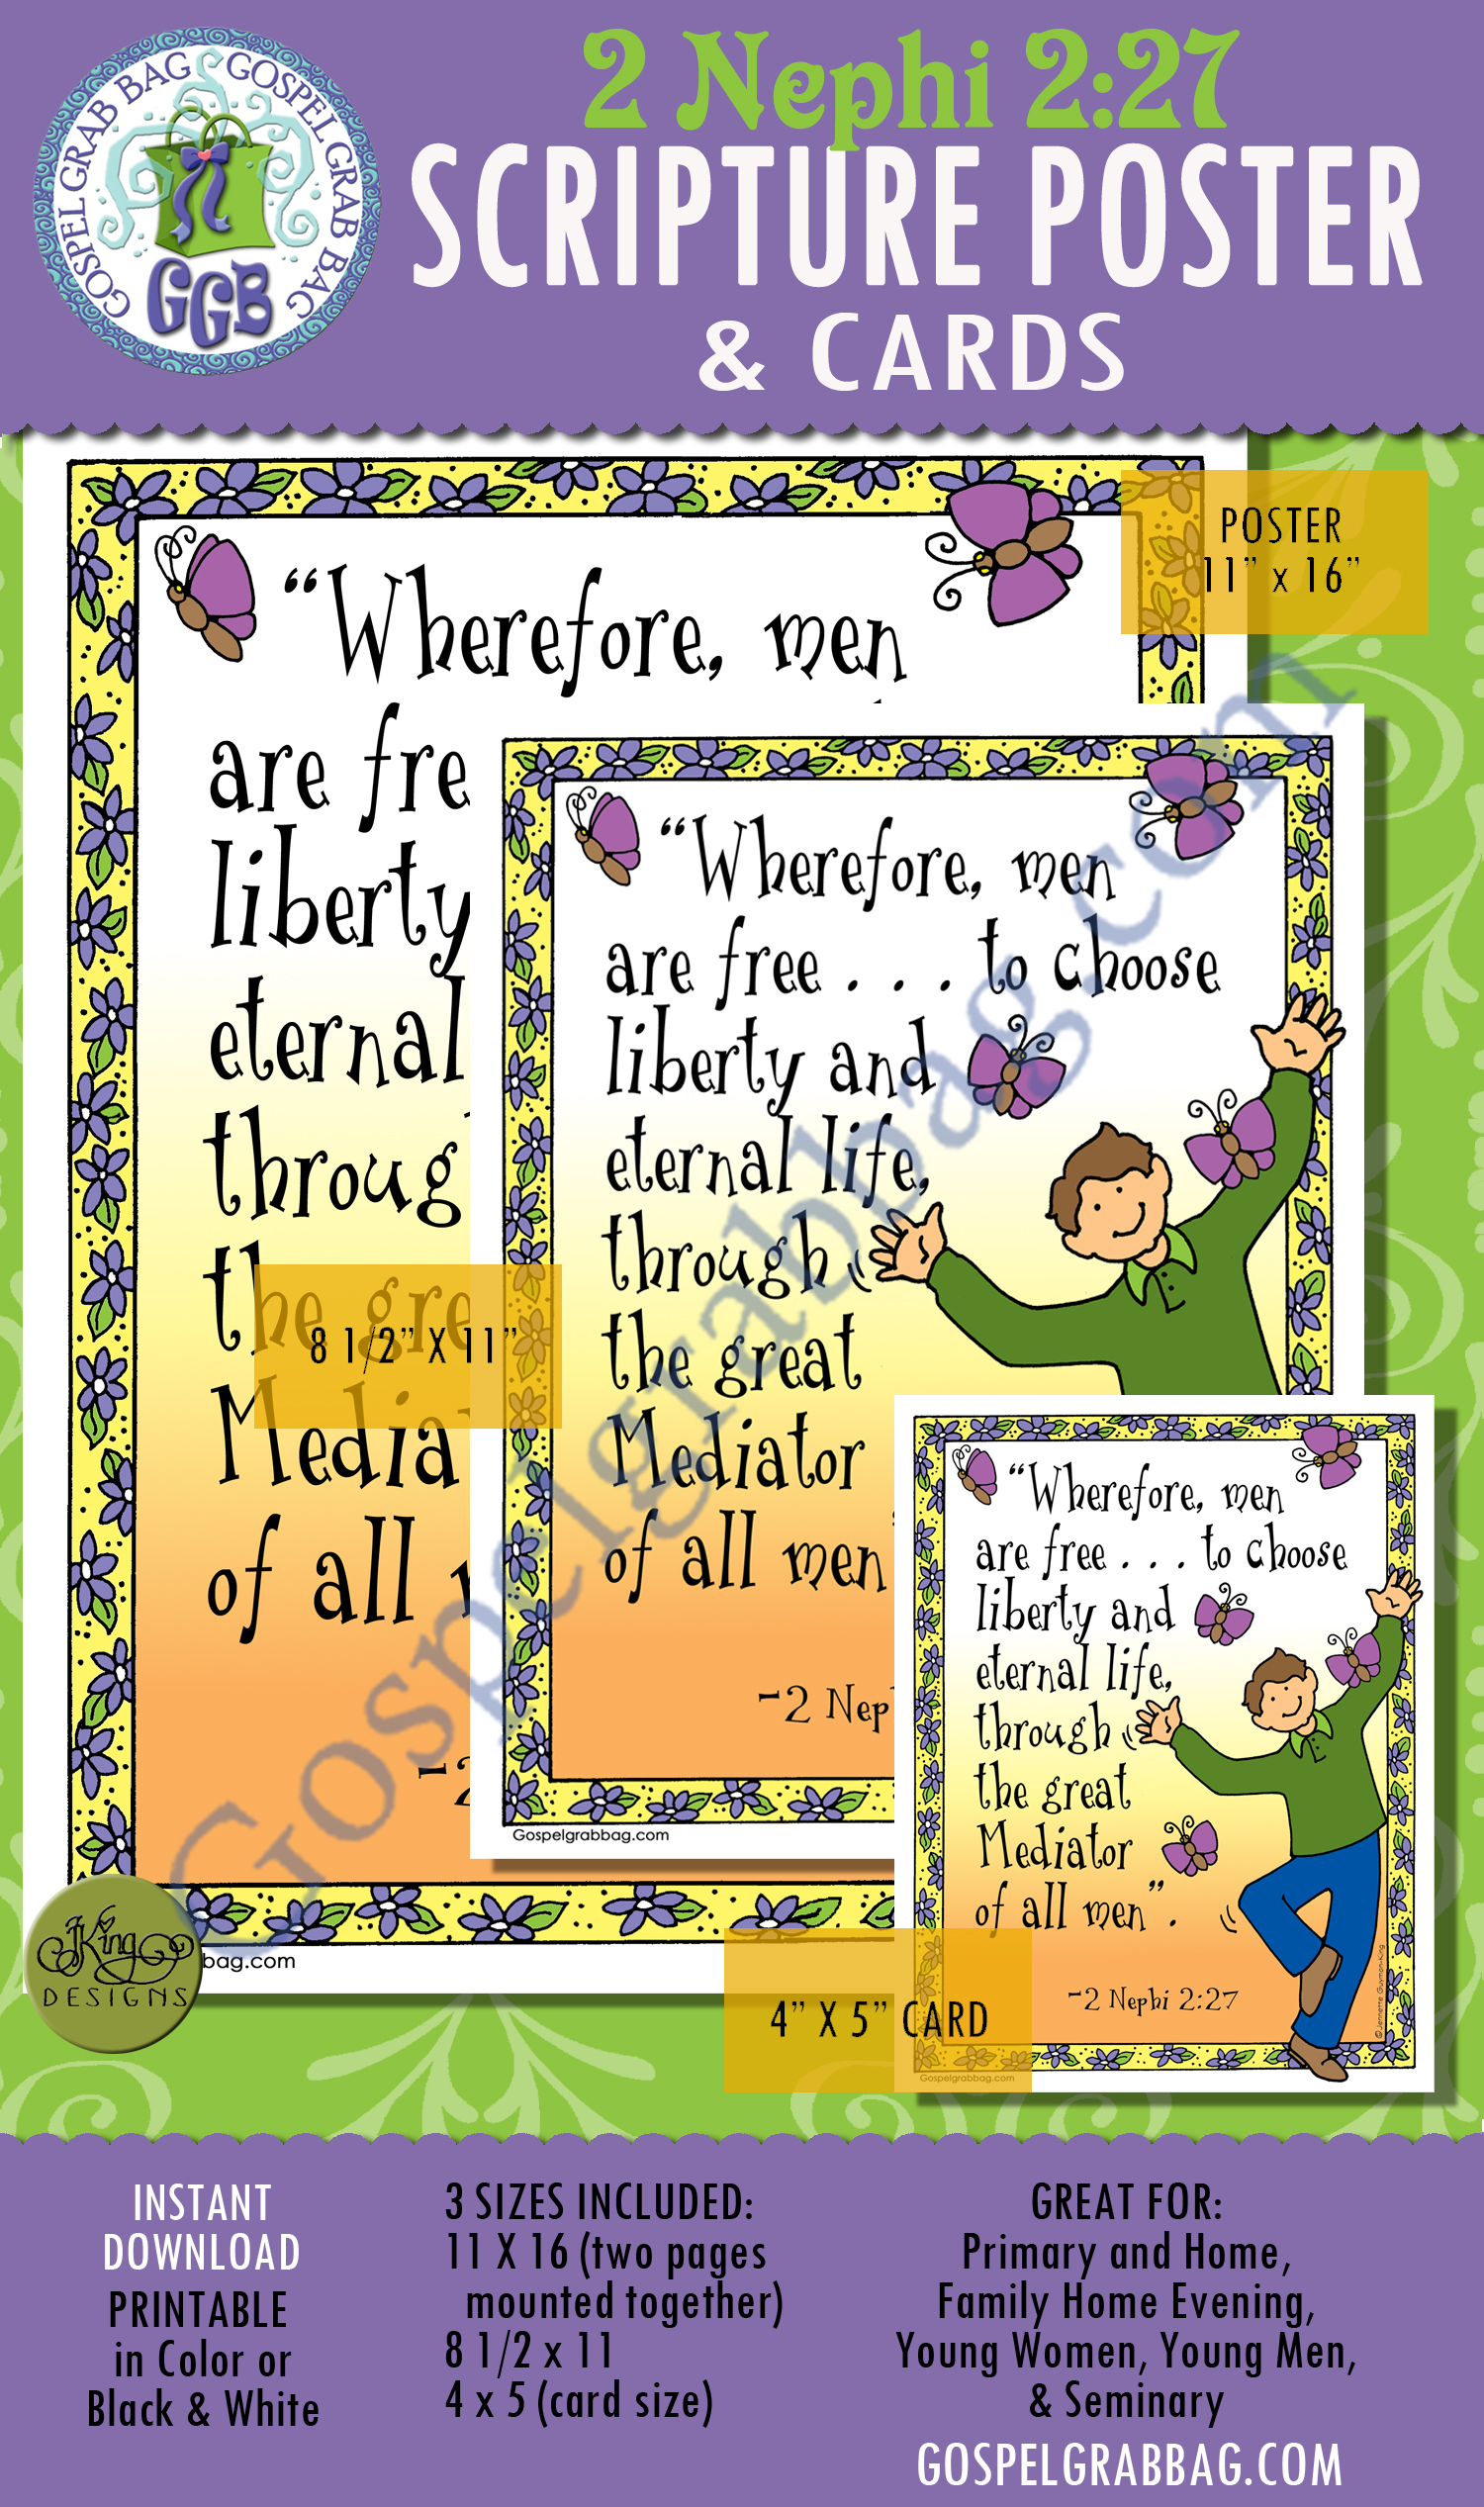 GOSPEL GRAB BAG GOSPEL GRAB BAG
GGB
2 Nephi 2:27
SCRIPTURE POSTER
& CARDS
POSTER
11” x 16”
“Wherefore, men
are fre
liberty
eternal
throug
the gre
Media
of all
-2
bag.com
8 1/2” X 11”
“Wherefore, men
are free . . . to choose
liberty and
eternal life,
through
the great
Mediator
of all men
-2 Nep
Gospelgrabbag.com
“Wherefore, men
are free . . . to choose
liberty and
eternal life,
through
the great
Mediator
of all men”.
-2 Nephi 2:27
©Jennette Guymon-King
Gospelgrabbag.com
4” X 5” CARD
Gospelgrabbag.com
JKing
DESIGNS
INSTANT
DOWNLOAD
PRINTABLE
in Color or
Black & White
3 SIZES INCLUDED:
11 X 16 (two pages
mounted together)
8 1/2 x 11
4 x 5 (card size)
GREAT FOR:
Primary and Home,
Family Home Evening,
Young Women, Young Men,
& Seminary
GOSPELGRABBAG.COM